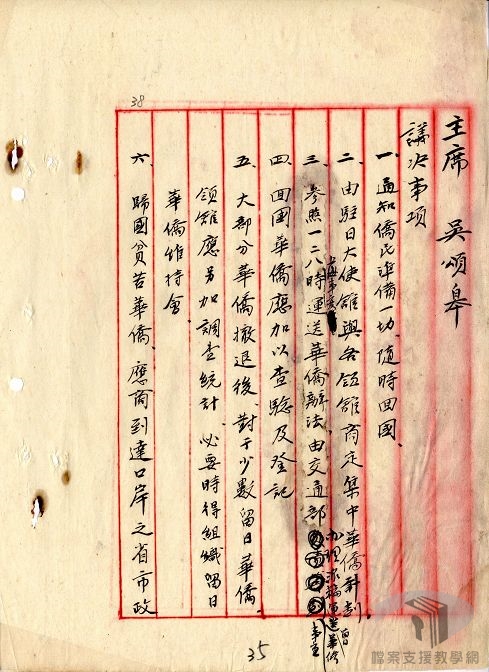 38
主席　吳頌皋
議決事項
一、通知僑民準備一切、隨時回國、
二、由駐日大使館與各領館商定集中華僑計劃
三、參照一二八時運送華僑辦法、由交通部
四、回國華僑應加以查驗及登記
五、大部分華僑撤退後、對于少數留日華僑、
領館應另加調查統計、必要時得組織留日
華僑維持會、
六、歸國貧苦華僑、應商到達口岸之省市政
35
檔案支援教學網